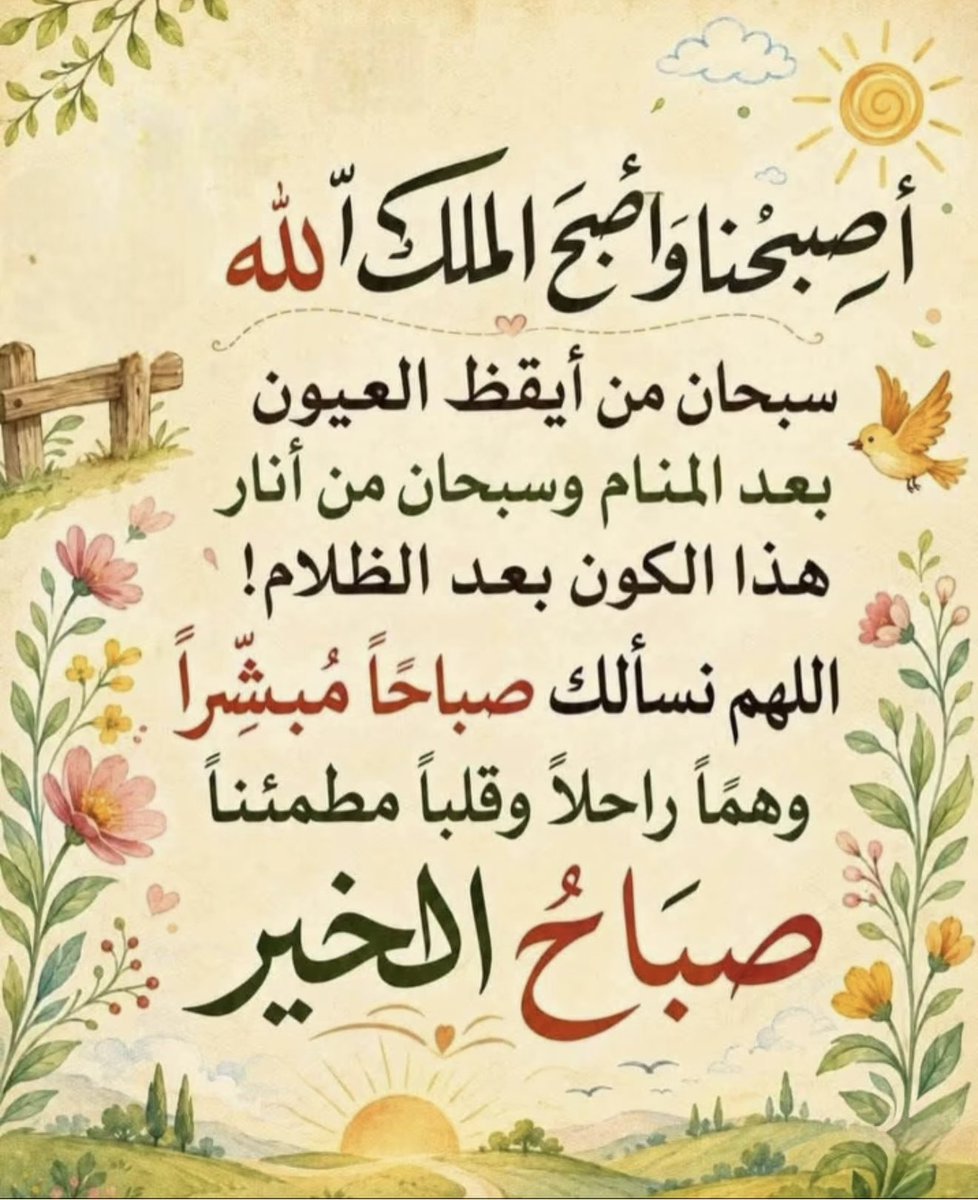 أصبحْنا وَأصبَحَ الملك الله
سبحان من أيقظ العيون
بعد المنام وسبحان من أنار
هذا الكون بعد الظلام!
اللهم نسألك صباحًاً مُبشِّراً
وهمًاً راحلاً وقلباً مطمئنناً
صبَاحُ الخير